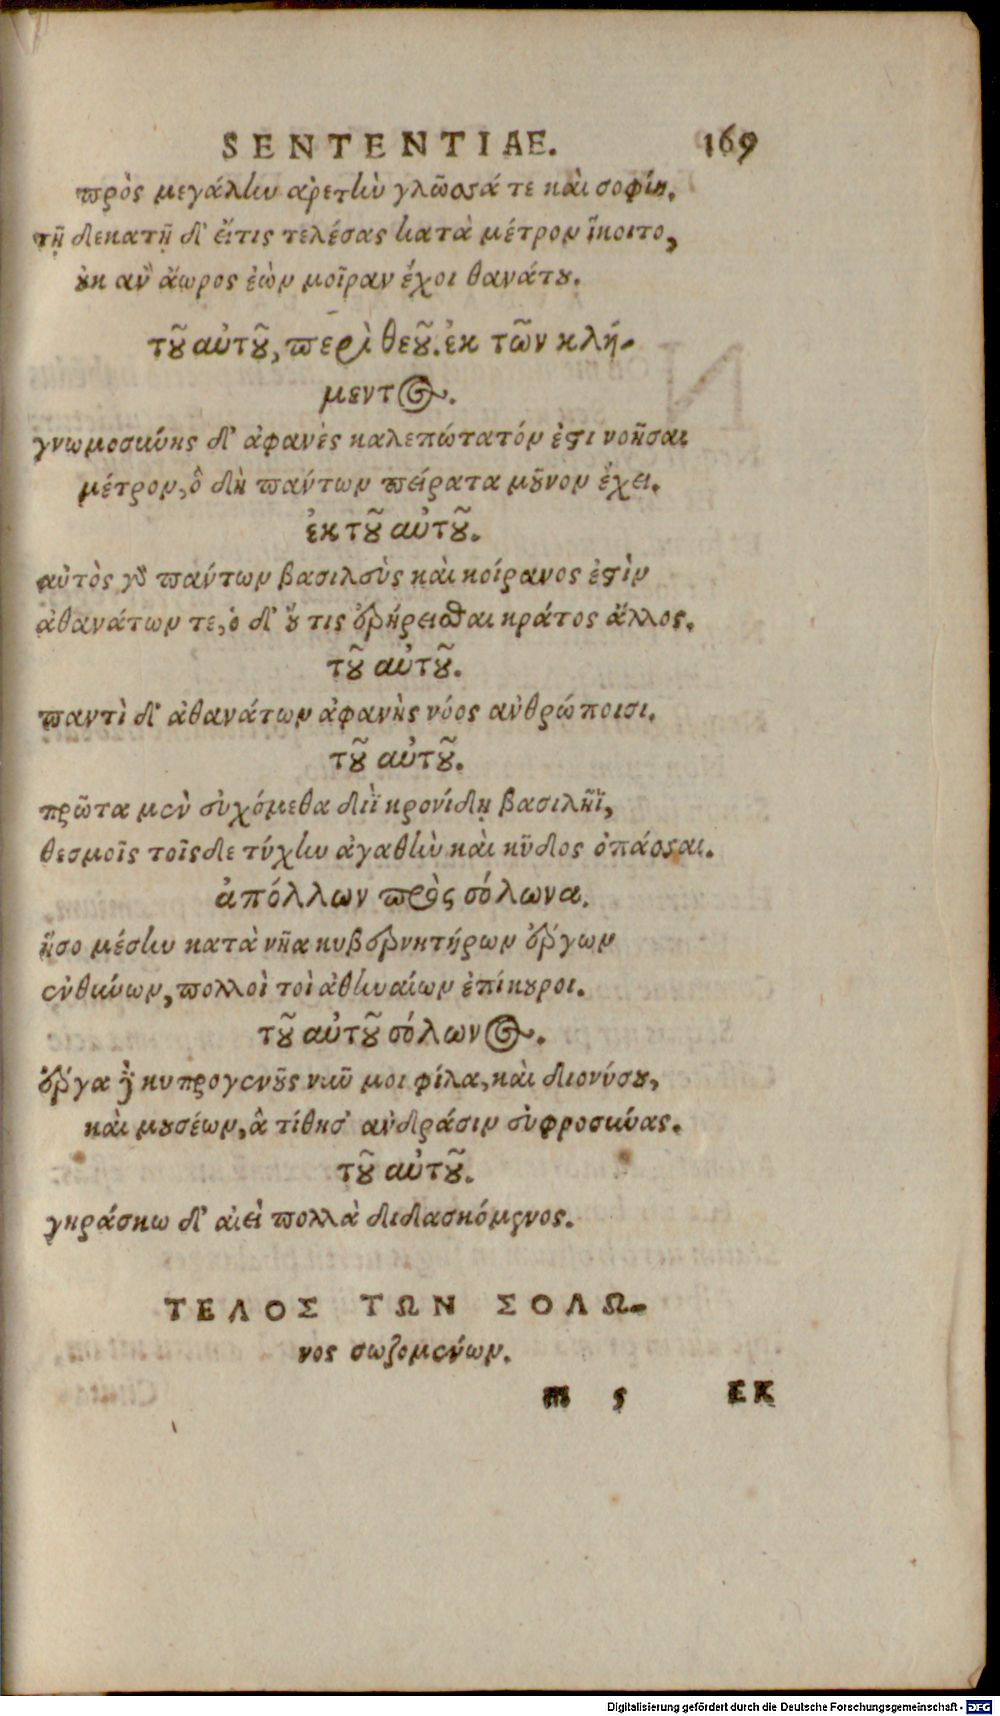 SENTENTIAE. 169
πρὸς μεγάλην ἀρετὴν γλῶσσά τε καὶ σοφίη.
τῇ δεκατῇ δ' εἴτις τελέσας κατὰ μέτρον ἵκοιτο,
οὐκ ἂν ἄωρος ἐὼν μοῖραν ἔχοι θανάτου.
τοῦ αὐτοῦ, περὶ θεοῦ. ἐκ τῶν κλή-
μεντος.
γνωμοσύνης δ' ἀφανὲς καλεπώτατόν ἐστι νοῆσαι
μέτρον, ὃ δὴ πάντων πείρατα μοῦνον ἔχει.
ἐκ τοῦ αὐτοῦ.
αὐτὸς γὰρ πάντων βασιλεὺς καὶ κοίρανος ἐστὶν
ἀθανάτων τε, ὁ δ' οὔ τις ἐρήρεισθαι κράτος ἄλλος.
τοῦ αὐτοῦ.
παντὶ δ' ἀθανάτων ἀφανὴς νόος ἀνθρώποισι.
τοῦ αὐτοῦ.
πρῶτα μὲν εὐχόμεθα διῒ κρονίδῃ βασιλῆϊ,
θεσμοῖς τοῖσδε τύχην ἀγαθὴν καὶ κῦδος ὀπάσσαι.
ἀπόλλων πρὸς σόλωνα.
ἧσο μέσην κατὰ νῆα κυβερνητήρων ἔργων
εὐθύνων, πολλοὶ τοὶ ἀθηναίων ἐπίκουροι.
τοῦ αὐτοῦ σόλωνος.
ἔργα δὲ κυπρογενοῦς νῦν μοι φίλα, καὶ διονύσου,
καὶ μουσέων, ἃ τίθησ' ἀνδράσιν εὐφροσύνας.
τοῦ αὐτοῦ.
γηράσκω δ' αἰεὶ πολλὰ διδασκόμενος.
ΤΕΛΟΣ ΤΩΝ ΣΟΛΩ-
νος σωζομένων.
m 5 ΕΚ
Digitalisierung gefördert durch die Deutsche Forschungsgemeinschaft - DFG